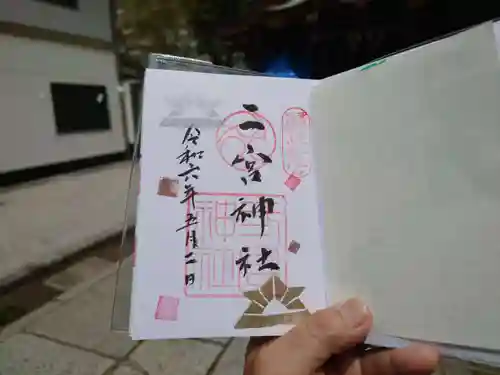 二宮神社
令和六年五月二日